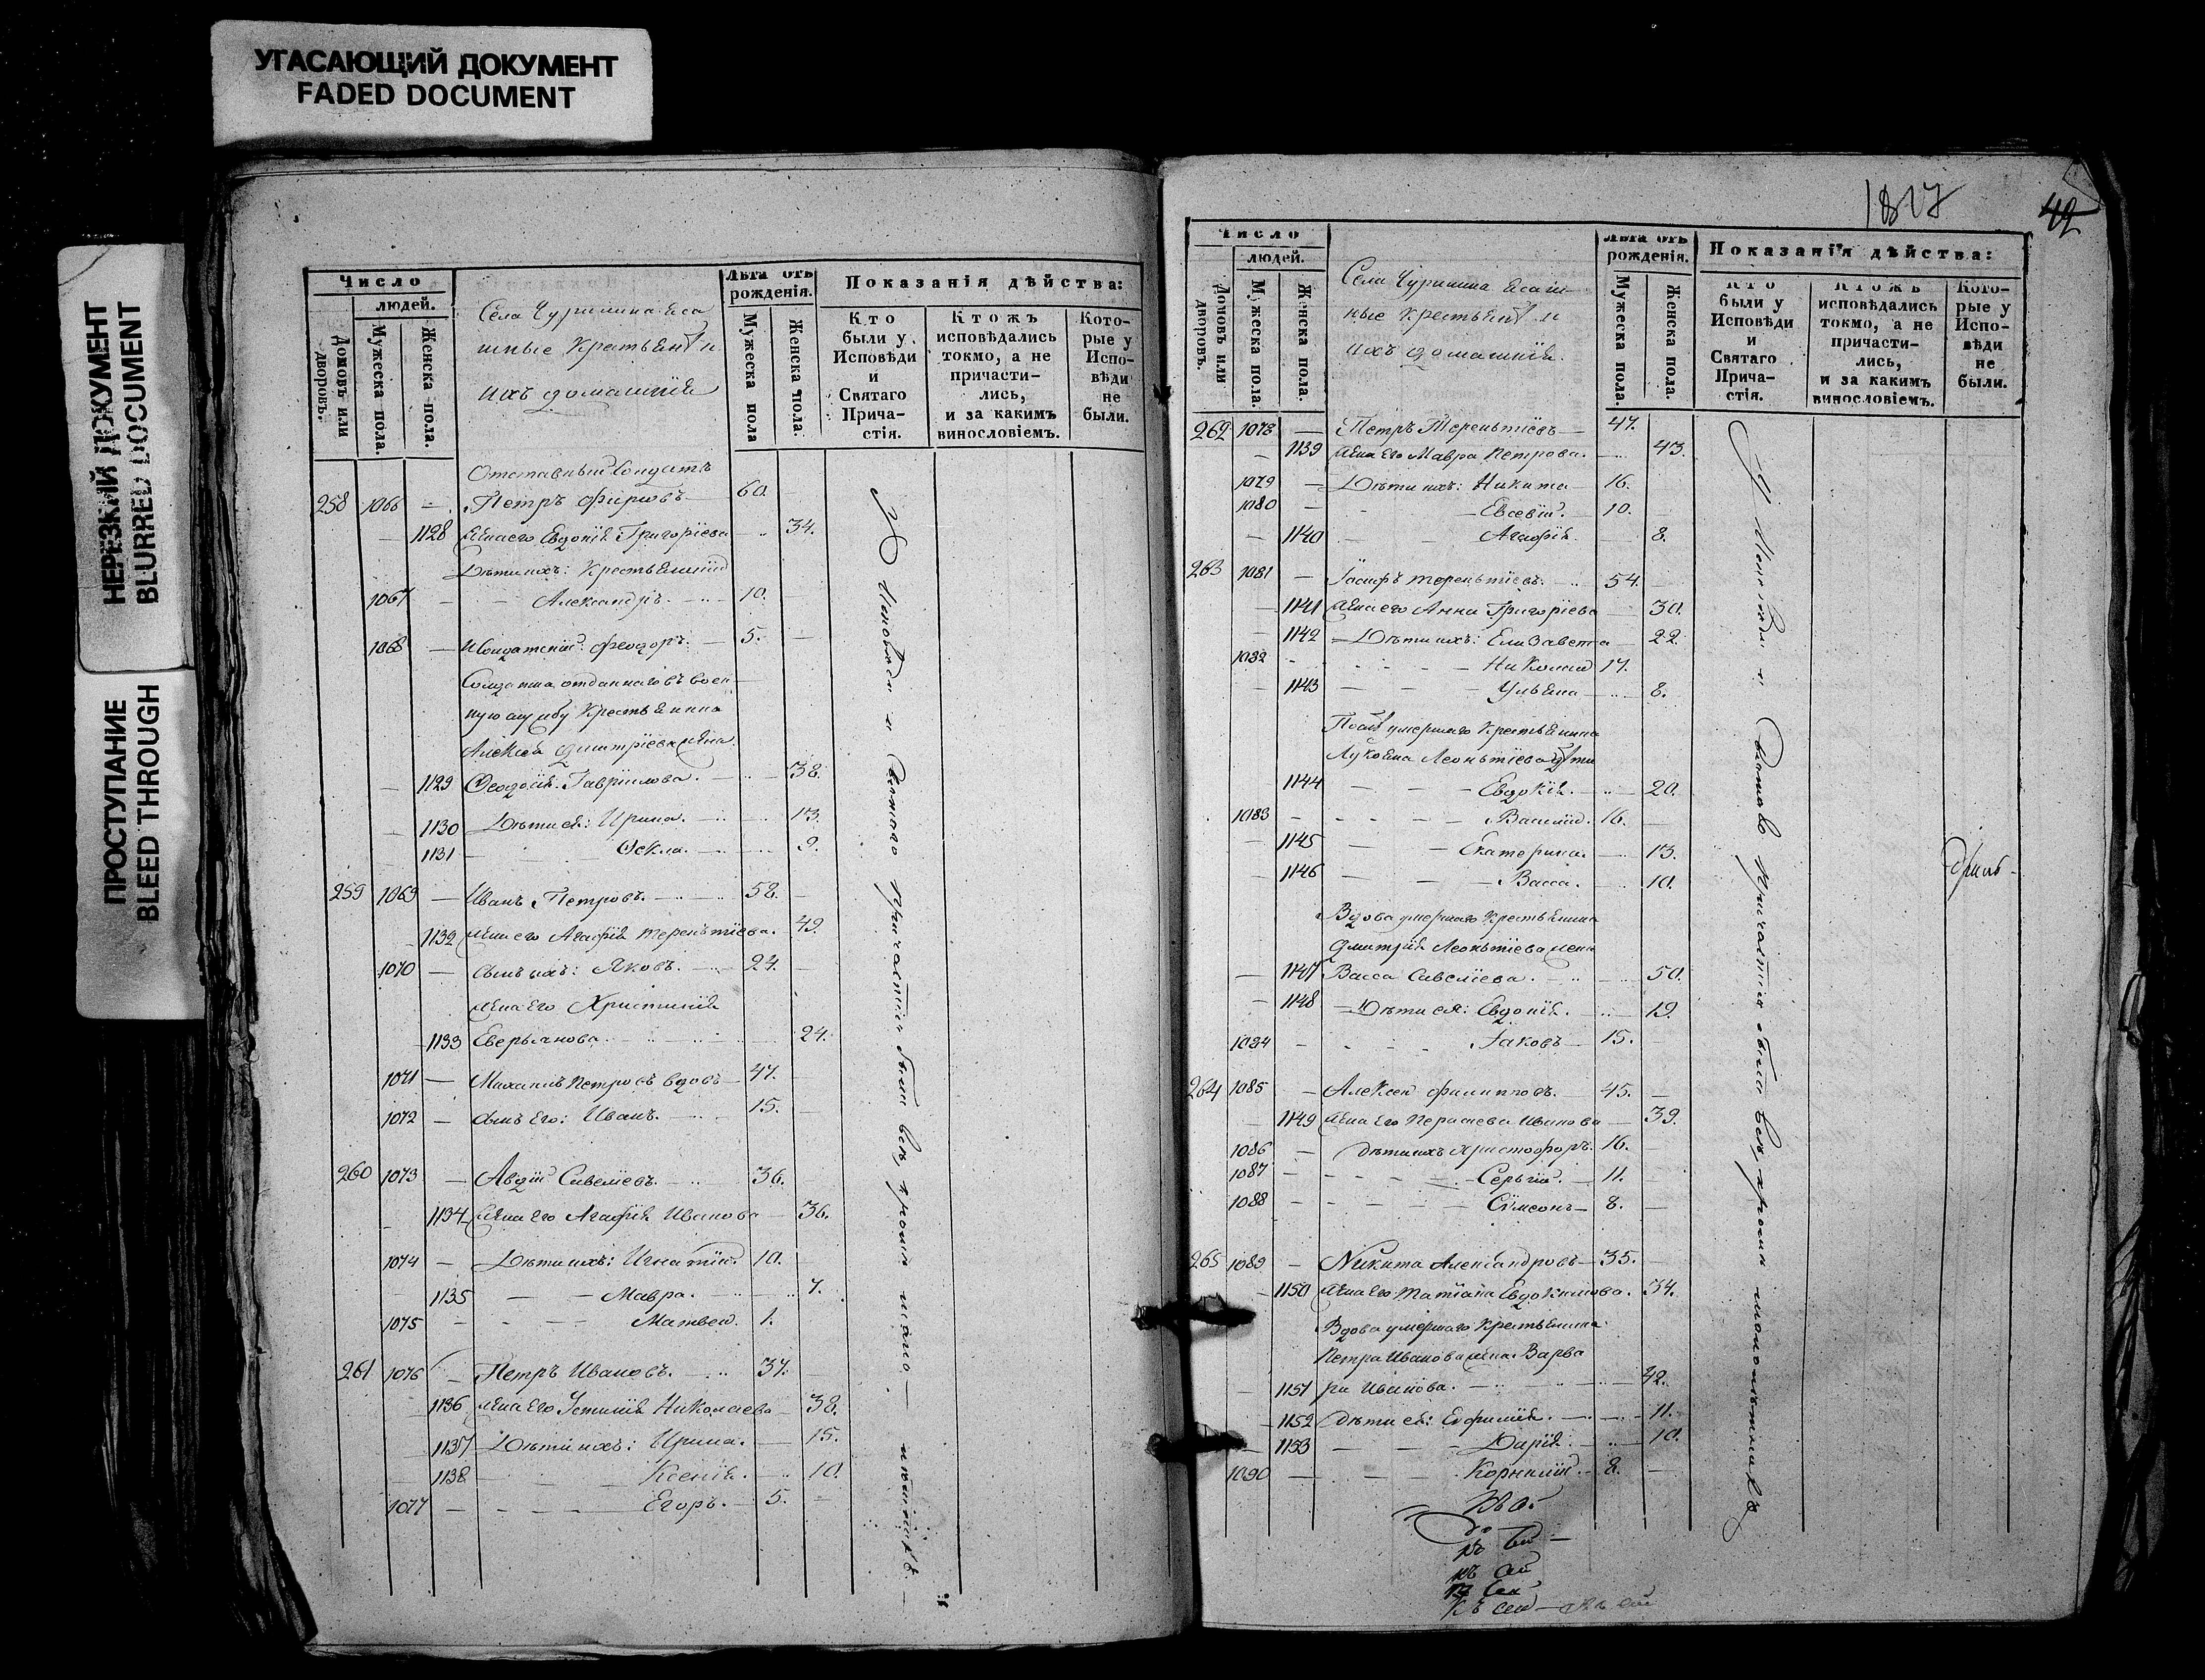 УГАСАЮЩИЙ ДОКУМЕНТ
FADED DOCUMENT
НЕРЕЗКИЙ ДОКУМЕНТ
BLURRED DOCUMENT
ПРОСТУПАНИЕ
BLEED THROUGH
Число
людей.
Домовъ или дворовъ.
Мужеска пола.
Женска пола.
Села Чурилина Яса
шные Крестьянѣ и
ихъ домашнія
Лѣта отъ рожденія.
Мужеска пола
Женска пола.
Показанія дѣйства:
Кто были у Исповѣди и Святаго Прича-стія.
Ктожъ исповѣдались токмо, а не причасти-лись, и за какимъ винословіемъ.
Кото-рые у Испо-вѣди не были.
Отставный Солдатъ
258 1066 — Петръ Фирсовъ — 60.
1128 Жена его Евдокія Григоріева — 34.
Дѣти ихъ: Крестьянскій
1067 — Александръ. — 10.
1068 — Солдатскій: Феодоръ. — 5.
Солдатка отданнаго въ воен
ную службу Крестьянина
Алексѣя Дмитріева жена
1129 Ѳеодосія Гаврилова. — 38.
1130 Дѣти ея: Ирина. — 13.
1131 — Ѳекла. — 9.
259 1069 — Иванъ Петровъ. — 58.
1132 Жена его Агафія Терентьева. 49.
1070 — Сынъ ихъ: Яковъ. — 24.
Жена его Христинія
1133 Северьянова — 24.
1071 — Михаилъ Петровъ вдовъ — 47.
1072 — Сынъ Его: Иванъ. — 15.
260 1073 — Авдій Савеліевъ. — 36.
1134 Жена Его Агафія Иванова — 36.
1074 — Дѣти ихъ: Игнатій. 10.
1135 — Мавра. — 7.
1075 — Матвей. 1.
261 1076 — Петръ Ивановъ. — 37.
1136 Жена Его Устинія Николаева — 38.
1137 Дѣти ихъ: Ирина. — 15.
1138 — Ксенія. — 10.
1077 — Егоръ. — 5.
У Исповѣди и Святаго Причастія были всѣ, кромѣ
1817
42
Число
людей.
Домовъ или дворовъ.
Мужеска пола.
Женска пола.
Села Чурилина Ясаш
ные Крестьянѣ и
ихъ домашнія.
Лѣта отъ рожденія.
Мужеска пола.
Женска пола.
Показанія дѣйства:
Кто были у Исповѣди и Святаго Прича-стія.
Ктожъ исповѣдались токмо, а не причасти-лись, и за какимъ винословіемъ.
Кото-рые у Испо-вѣди не были.
262 1078 — Петръ Терентьевъ — 47.
1139 Жена Его Мавра Петрова. — 43.
1079 — Дѣти ихъ: Никита — 16.
1080 — Евсевій. — 10.
1140 — Агафія — 8.
263 1081 — Іосифъ Терентьевъ. — 54.
1141 Жена его Анна Григоріева — 30.
1142 — Дѣти ихъ: Елизавета — 22.
1082 — Николай 17.
1143 — Ульяна — 8.
Послѣ умершаго Крестьянина
Лукояна Леонтьева дѣти
1144 — Евдокія. — 20.
1083 — Василій. 16.
1145 — Екатерина. — 13.
1146 — Васса. — 10.
Вдова умершаго Крестьянина
Дмитрія Леонтьева жена
1147 Васса Савеліева. — 50.
1148 — Дѣти ея: Евдокія. — 19.
1084 — Іаковъ — 15.
264 1085 — Алексей Филипповъ. — 45.
1149 Жена Его Параскева Иванова — 39.
1086 — Дѣти ихъ Христофоръ. 16.
1087 — Сергій. — 11.
1088 — Сѵмеонъ — 8.
265 1089 — Никита Александровъ — 35.
1150 Жена Его Татіана Евдокимова. 34.
Вдова умершаго Крестьянина
Петра Иванова жена Варва
1151 ра Иванова. — 42.
1152 Дѣти ея: Евфимія. — 11.
1153 — Дарія — 10.
1090 — Корнилій. — 8.
У Исповѣди и Святаго Причастія были всѣ, кромѣ малолѣтнихъ